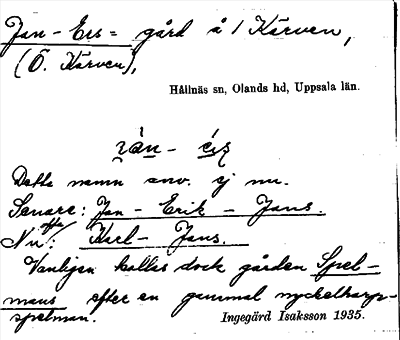 Jan-Ers= gård å/ Kärven,
(Ö. Kärven),
Hållnäs sn, Olands hd, Uppsala län.
Detta namn anv. ej nu.
Senare: Jan-Erik-Jans.
ofta
Nu: Karl-Jans.
Vanligen kallas dock gården Spel-
mans efter en gammal nyckelharp-
spelman.
Ingegärd Isaksson 1935.